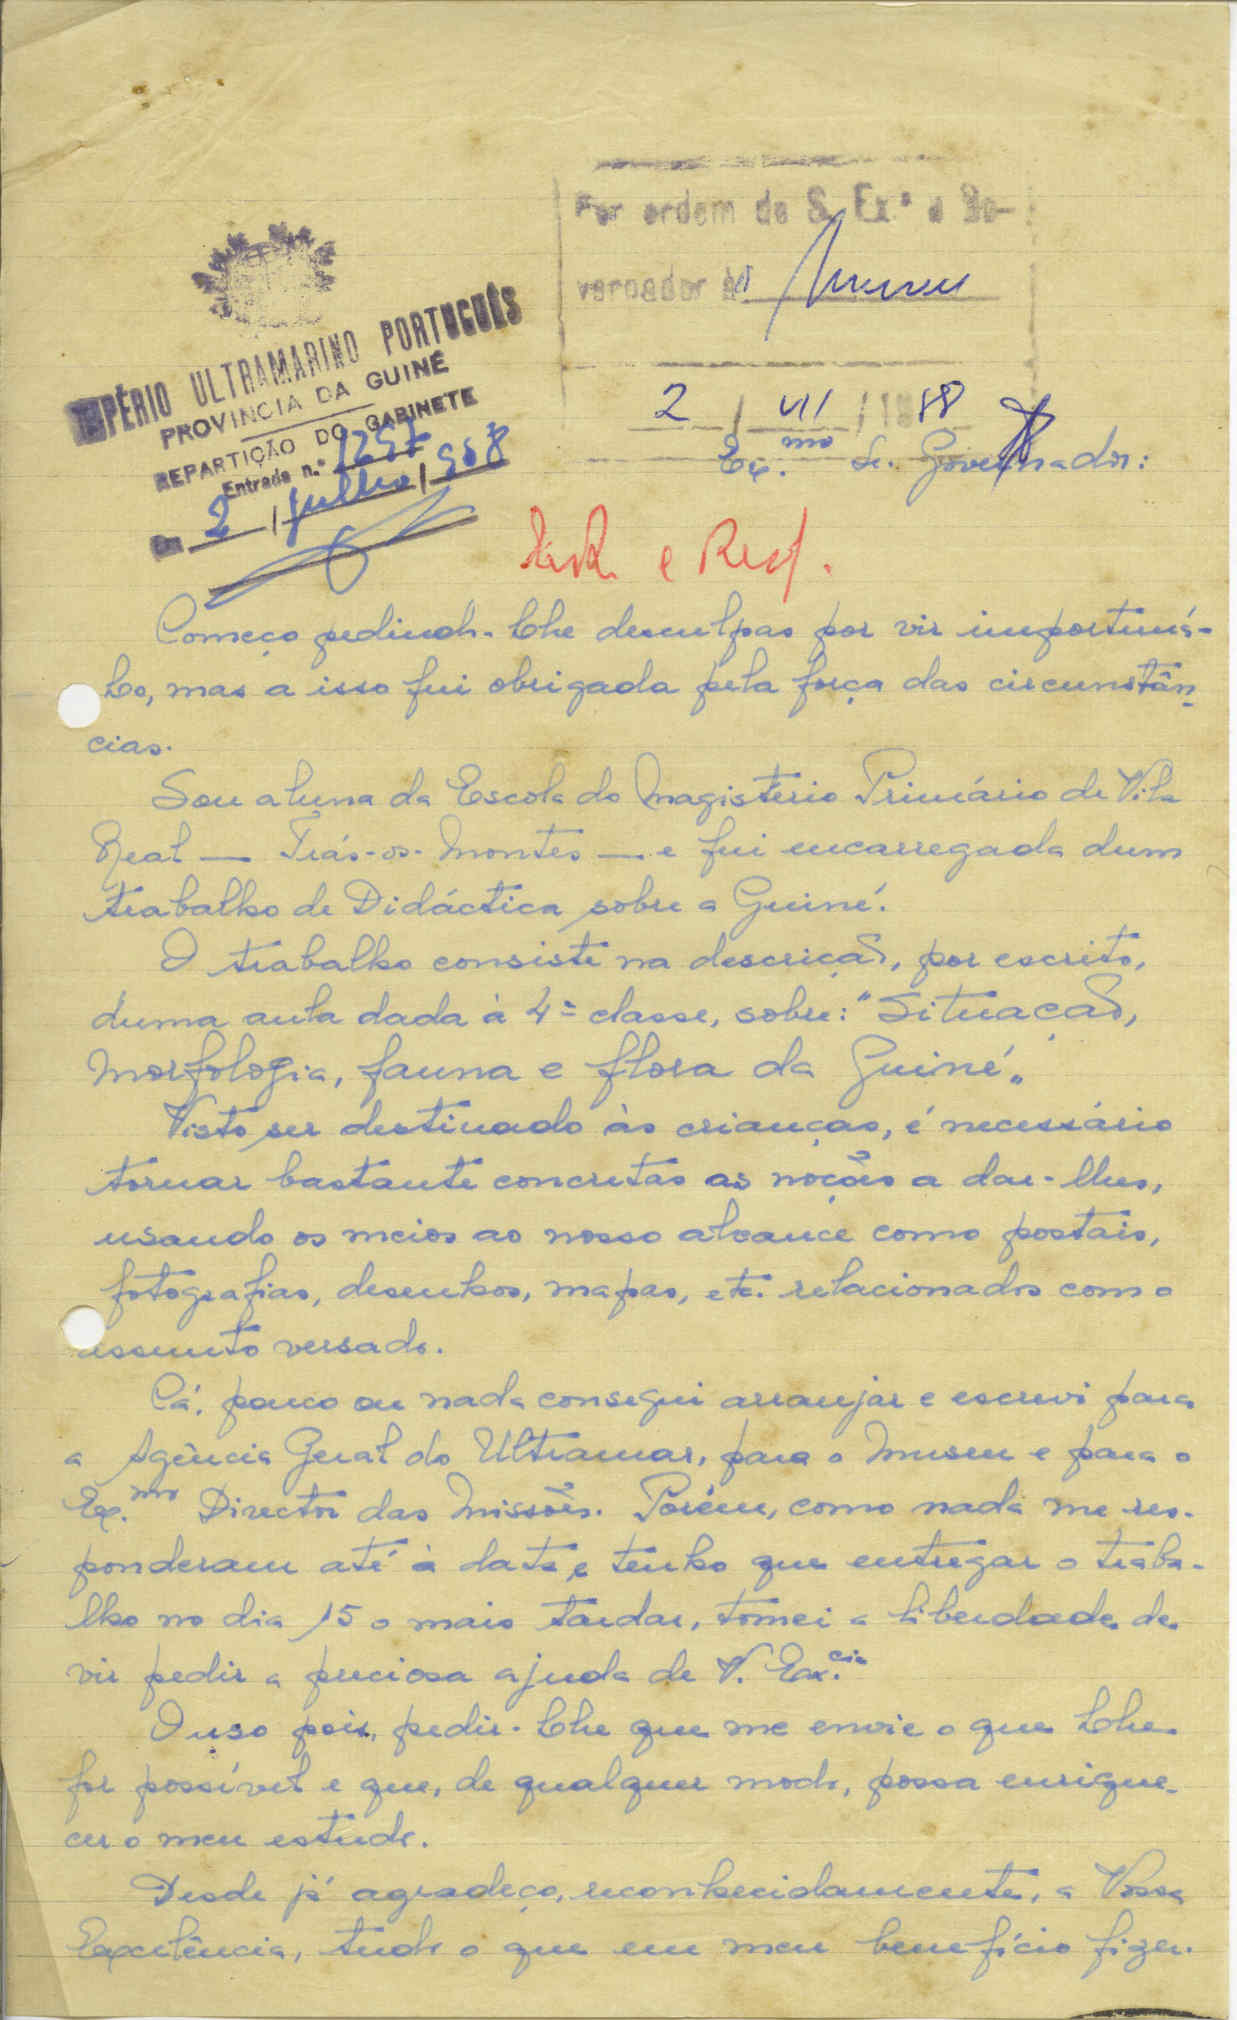 Por ordem de S. Ex.ª o Go-
vernador
2 / VII / 1958
IMPÉRIO ULTRAMARINO PORTUGUÊS
PROVINCIA DA GUINÉ
REPARTIÇÃO DO GABINETE
Entrada n.º
Em 2 / julho / 958
Ex.mo Sr. Governador:
Começo pedindo-Lhe desculpas por vir importuná-
Lo, mas a isso fui obrigada pela força das circunstân-
cias.
Sou aluna da Escola do Magistério Primário de Vila
Real — Trás-os-Montes — e fui encarregada dum
trabalho de Didáctica sobre a Guiné.
O trabalho consiste na descrição, por escrito,
duma aula dada à 4ª classe, sobre: "Situação,
Morfologia, fauna e flora da Guiné".
Visto ser destinado às crianças, é necessário
tornar bastante concretas as noções a dar-lhes,
usando os meios ao nosso alcance como postais,
fotografias, desenhos, mapas, etc. relacionados com o
assunto versado.
Cá, pouco ou nada consegui arranjar e escrevi para
a Agência Geral do Ultramar, para o Museu e para o
Ex.mo Director das Missões. Porém, como nada me res-
ponderam até à data, e tenho que entregar o traba-
lho no dia 15 o mais tardar, tomei a liberdade de
vir pedir a preciosa ajuda de V. Ex.cia
Ouso pois, pedir-Lhe que me envie o que Lhe
for possível e que, de qualquer modo, possa enrique-
cer o meu estudo.
Desde já agradeço, reconhecidamente, a Vossa
Excelência, tudo o que em meu benefício fizer.